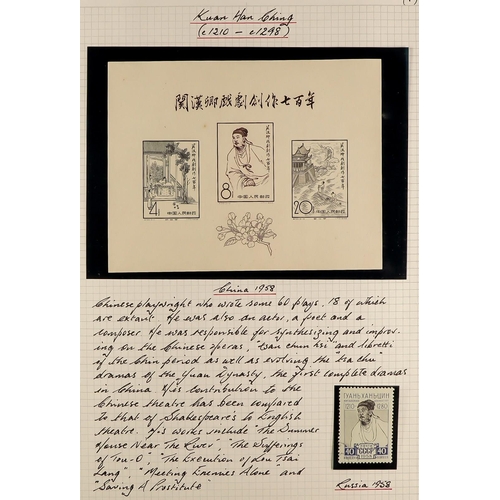 Kuan Han Ching
(c1210 – c1298)
關漢卿戲劇創作七百年
4
8
20
中国人民邮政
中国人民邮政
中国人民邮政
China 1958
Chinese playwright who wrote some 60 plays, 18 of which
are extant. He was also an actor, a poet and a
composer. He was responsible for synthesizing and improv-
ing on the Chinese operas, "tsan chun hsi" and libretti
of the Chin period as well as evolving the "tsa chu"
dramas of the Yuan Dynasty, the first complete dramas
in China. His contribution to the
Chinese theatre has been compared
to that of Shakespeare's to English
theatre. His works include "The Summer
House Near The River", "The Sufferings
of Tou-O", "The Execution of Lou Tsai
Lang", "Meeting Enemies Alone" and
"Saving A Prostitute"
ГУАНЬ ХАНЬ-ЦИН
40 СССР 40
Russia 1958